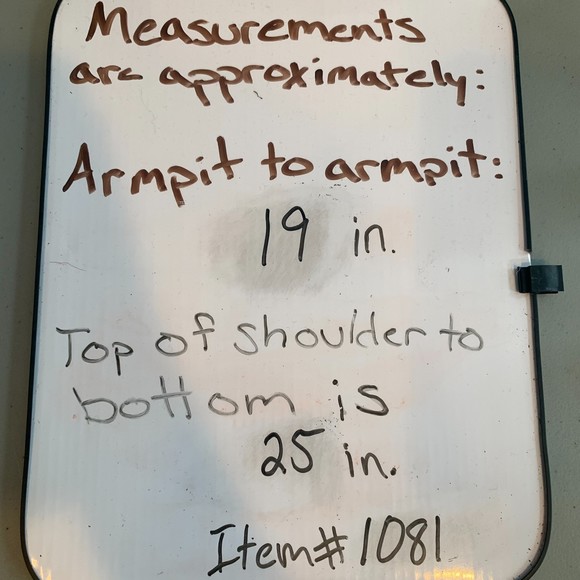 Measurements
are approximately:
Armpit to armpit:
19 in.
Top of shoulder to
bottom is
25 in.
Item# 1081